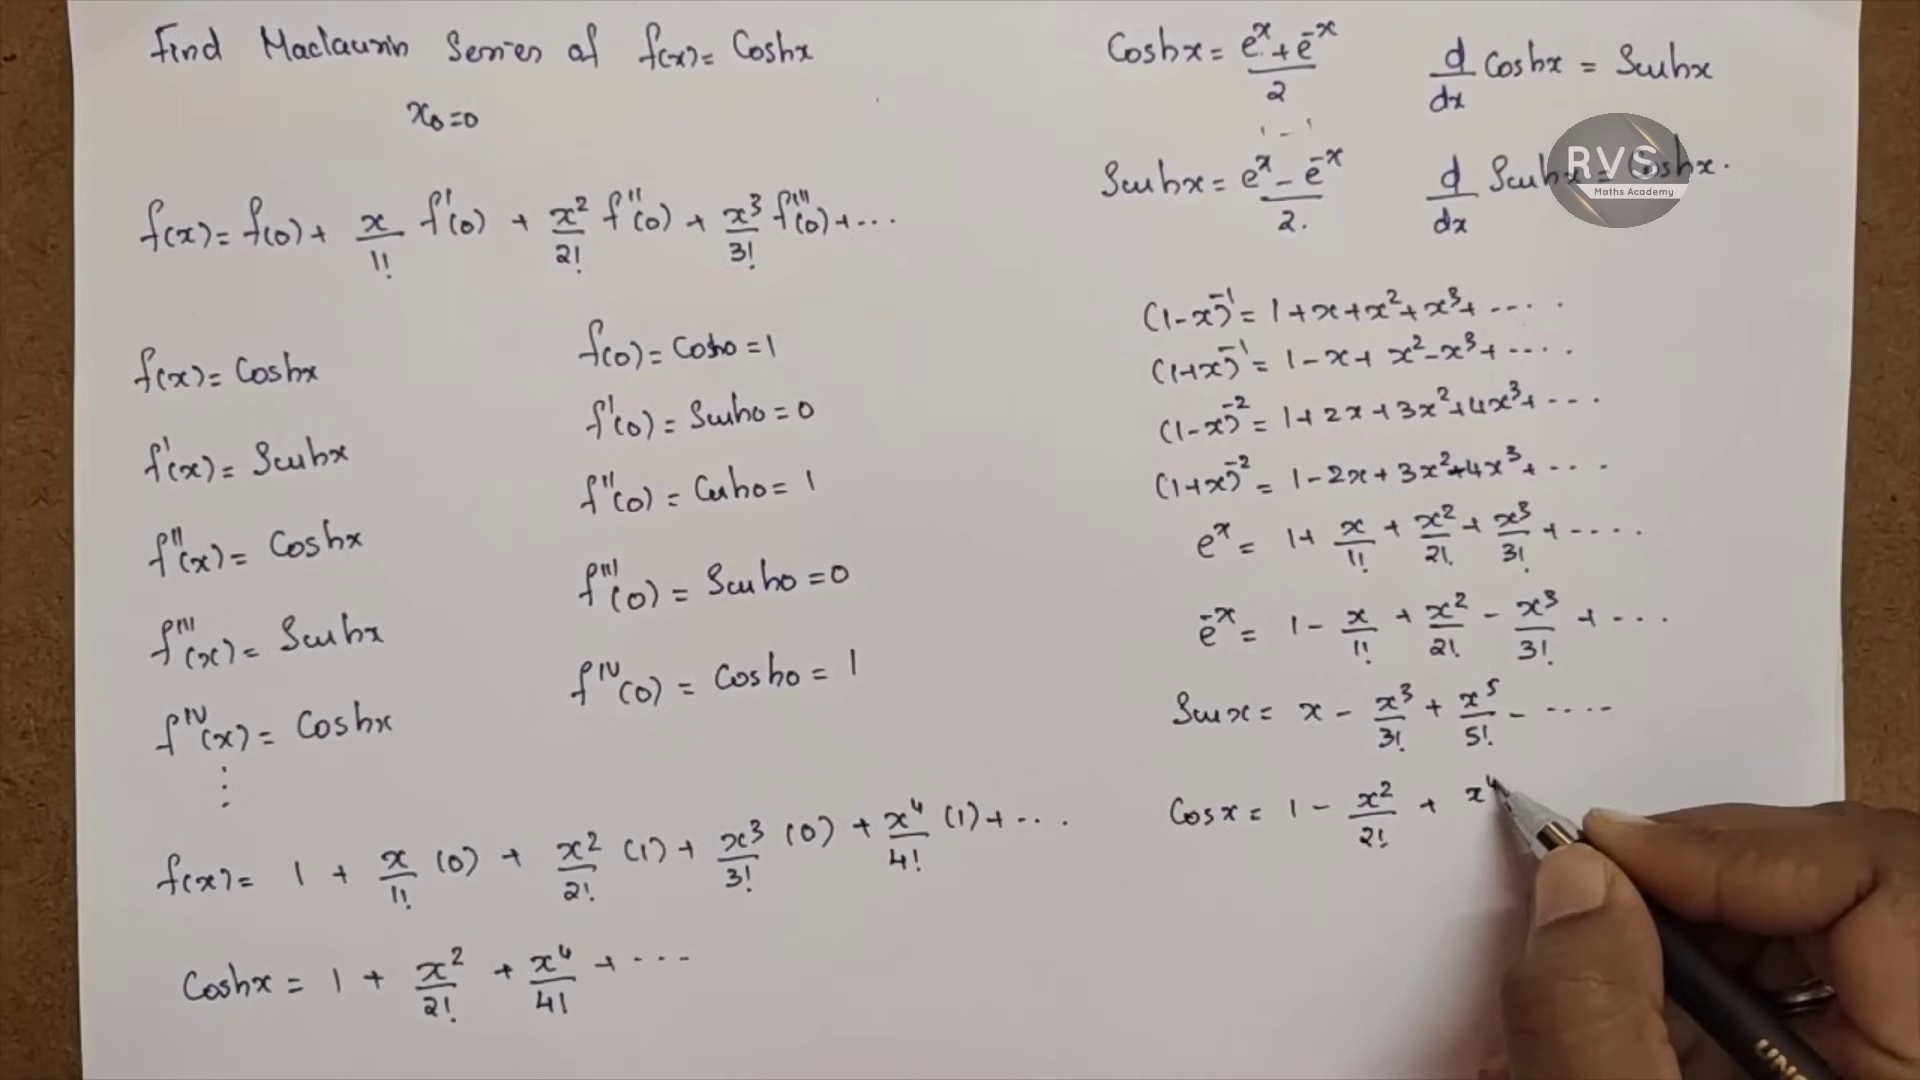 Find Maclaurin Series of f(x) = Coshx
x₀ = 0
f(x) = f(0) + x/1! f'(0) + x²/2! f''(0) + x³/3! f'''(0) + ...
f(x) = Coshx
f'(x) = Sinhx
f''(x) = Coshx
f'''(x) = Sinhx
f^IV(x) = Coshx
⋮
f(0) = Cosh0 = 1
f'(0) = Sinh0 = 0
f''(0) = Cosh0 = 1
f'''(0) = Sinh0 = 0
f^IV(0) = Cosh0 = 1
f(x) = 1 + x/1! (0) + x²/2! (1) + x³/3! (0) + x⁴/4! (1) + ...
Coshx = 1 + x²/2! + x⁴/4! + ...
Coshx = (e^x + e^-x)/2
d/dx Coshx = Sinhx
Sinhx = (e^x - e^-x)/2.
d/dx Sinhx = Coshx.
RVS
Maths Academy
(1-x)^-1 = 1 + x + x² + x³ + ....
(1+x)^-1 = 1 - x + x² - x³ + ....
(1-x)^-2 = 1 + 2x + 3x² + 4x³ + ...
(1+x)^-2 = 1 - 2x + 3x² - 4x³ + ...
e^x = 1 + x/1! + x²/2! + x³/3! + ....
e^-x = 1 - x/1! + x²/2! - x³/3! + ...
Sinx = x - x³/3! + x⁵/5! - ....
Cosx = 1 - x²/2! + x⁴
UNI